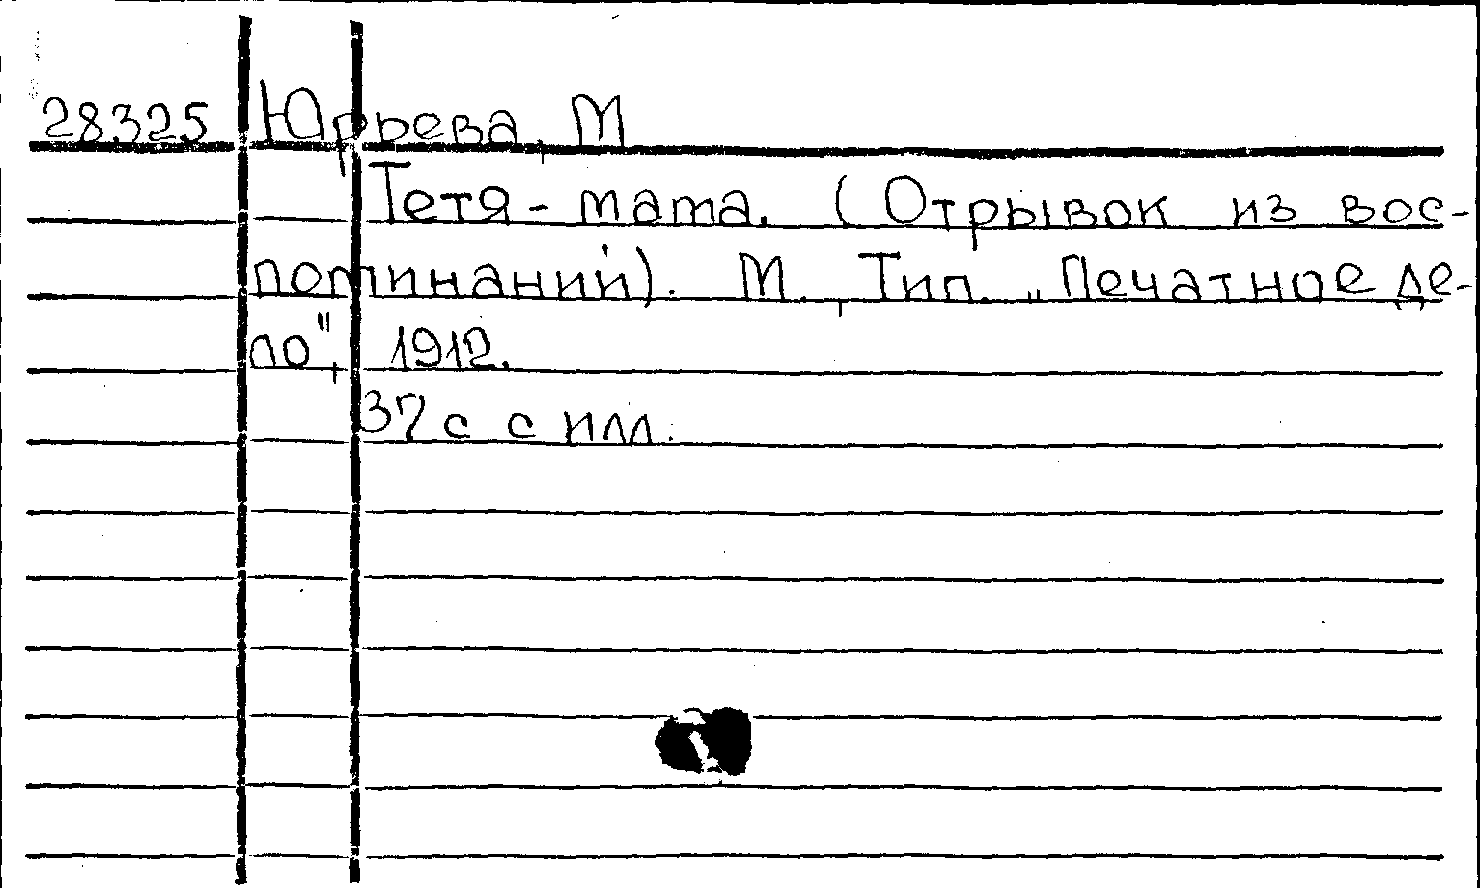 28325 Юрьева, М
Тетя - мама. (Отрывок из вос-
поминаний). М., Тип. „Печатное де-
ло", 1912.
37 с с илл.